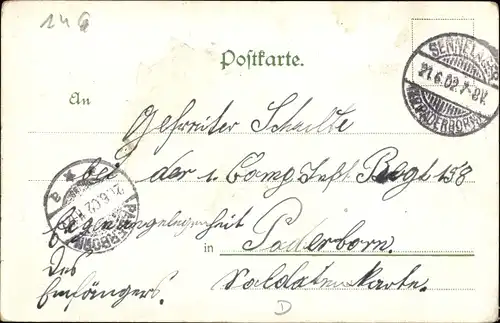 14 G
Postkarte.
SENNELAGER
21.6.02.7-8V.
(KR. PADERBORN)
An
Gefreiter Schulte
bei der 1. Comp Inft Regt 158
* a
21.6.02
PADERBORN
Eigenangelegenheit
in Paderborn.
des
Empfängers.
Soldaten Karte.
D